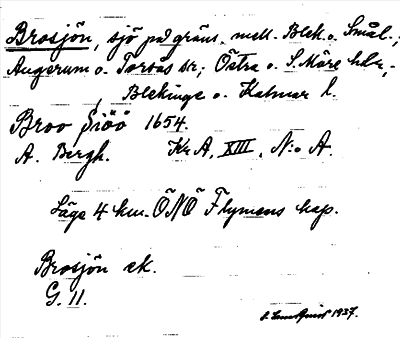 Brosjön, sjö på gräns. mell. Blek. o. Smål.,
Augerum o. Torsås sn; Östra o. S. Möre hdr,
Blekinge o. Kalmar l.
Broo Siöö 1654.
A. Bergh. Kr A, XIII, N:o A.
Läge 4 km. ÖNÖ Flymens kap.
Brosjön ek.
G. 11.
S. Landqvist 1937.